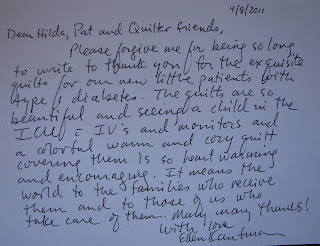 4/8/2011
Dear Hilda, Pat and Quilter friends,
Please forgive me for being so long
to write to thank you for the exquisite
quilts for our new little patients with
type 1 diabetes. The quilts are so
beautiful and seeing a child in the
ICU c̄ IV's and monitors and
a colorful warm and cozy quilt
covering them is so heart warming
and encouraging. It means the
world to the families who receive
them and to those of us who
take care of them. Many many thanks!
With love
Ellen Kaufman